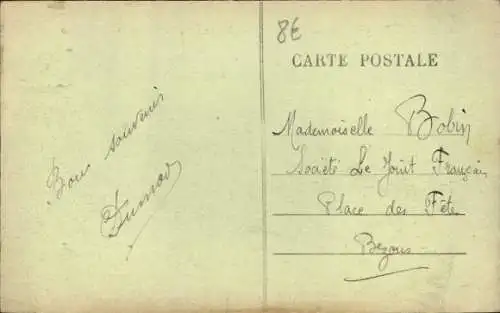 8€
CARTE POSTALE
Bons souvenirs
Mademoiselle Bobin
Société Le Joint Français
Place des Fête
Bezons